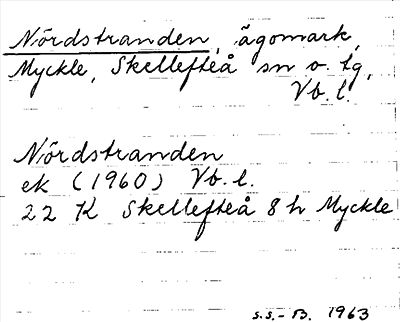 Nördstranden, ägomark,
Myckle, Skellefteå sn o. tg,
Vb. l.
Nördstranden
ek (1960) Vb. l.
22 K Skellefteå 8 h Myckle
S.S.-B. 1963